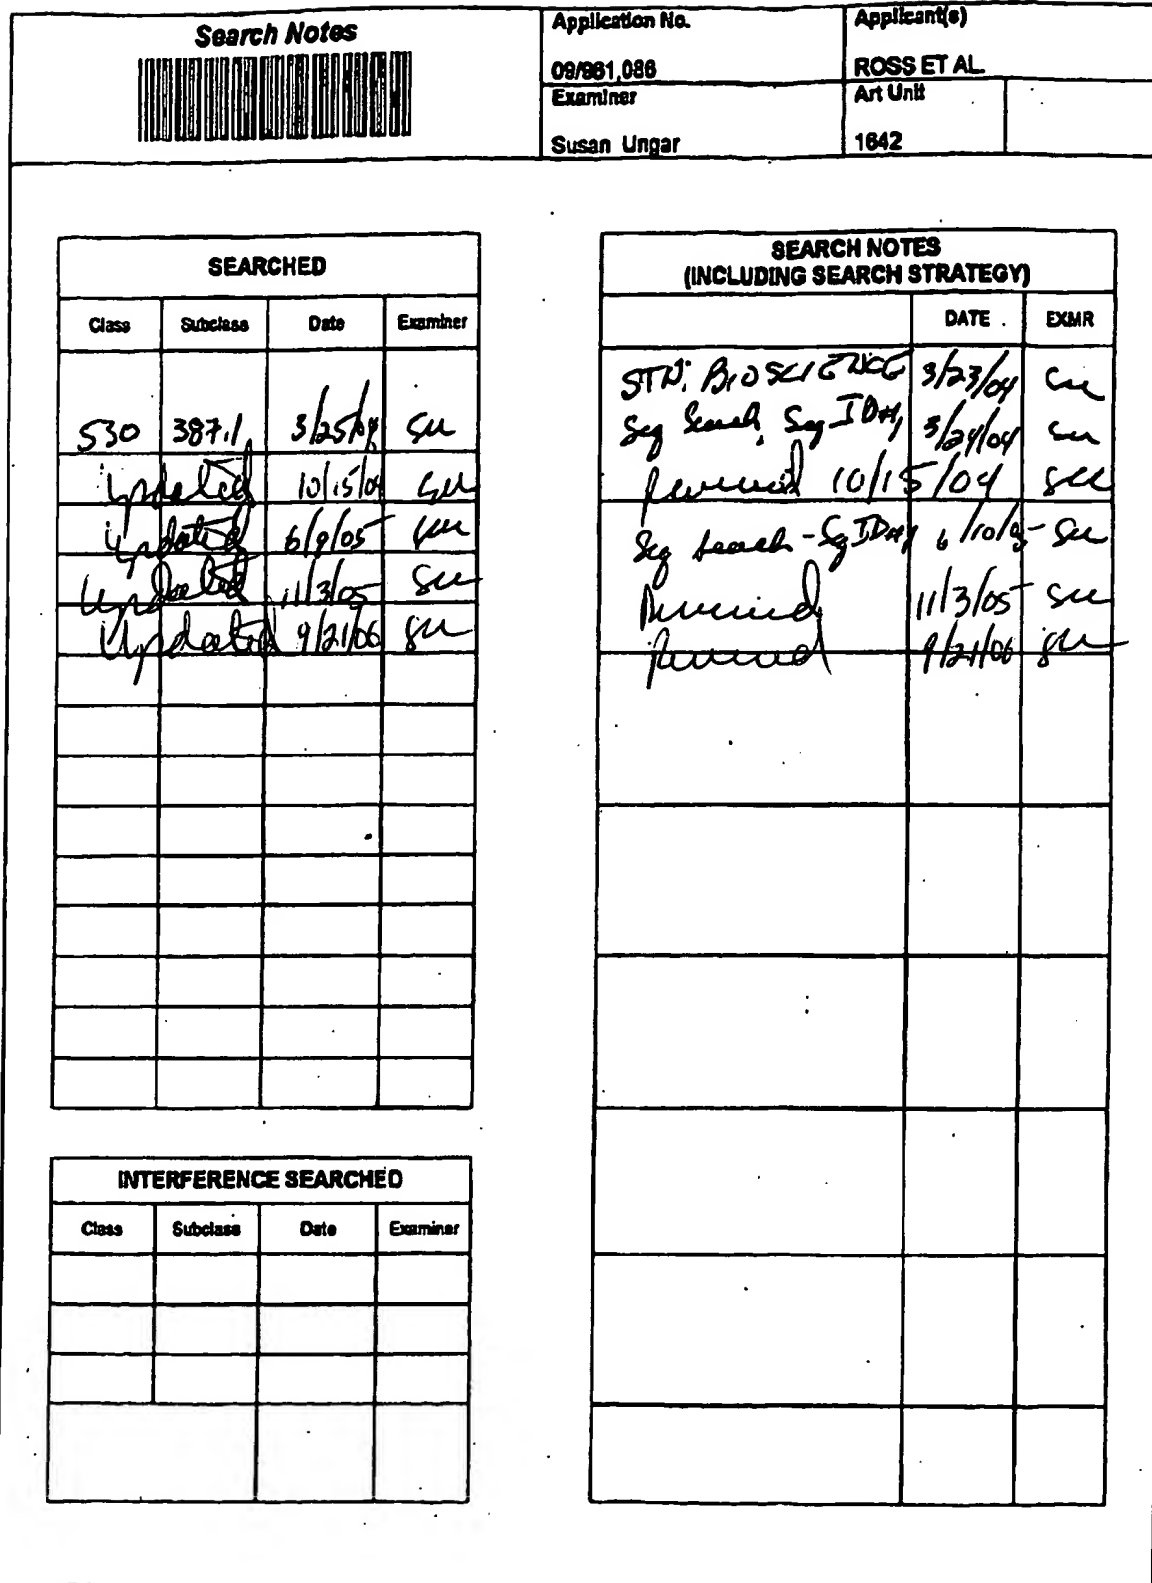 Search Notes
Application No.
09/961,086
Applicant(s)
ROSS ET AL.
Examiner
Susan Ungar
Art Unit
1642
SEARCHED
Class Subclass Date Examiner
530 387.1 3/25/04 su
updated 10/15/04 su
updated 6/9/05 su
updated 11/3/05 su
Updated 9/21/06 su
INTERFERENCE SEARCHED
Class Subclass Date Examiner
SEARCH NOTES
(INCLUDING SEARCH STRATEGY)
DATE EXMR
STN: BIOSCIENCE 3/23/04 su
Seq Search, Seq ID#1 3/24/04 su
10/15/04 su
Seq search - Sq ID#1 6/10/05 su
11/3/05 su
9/21/06 su